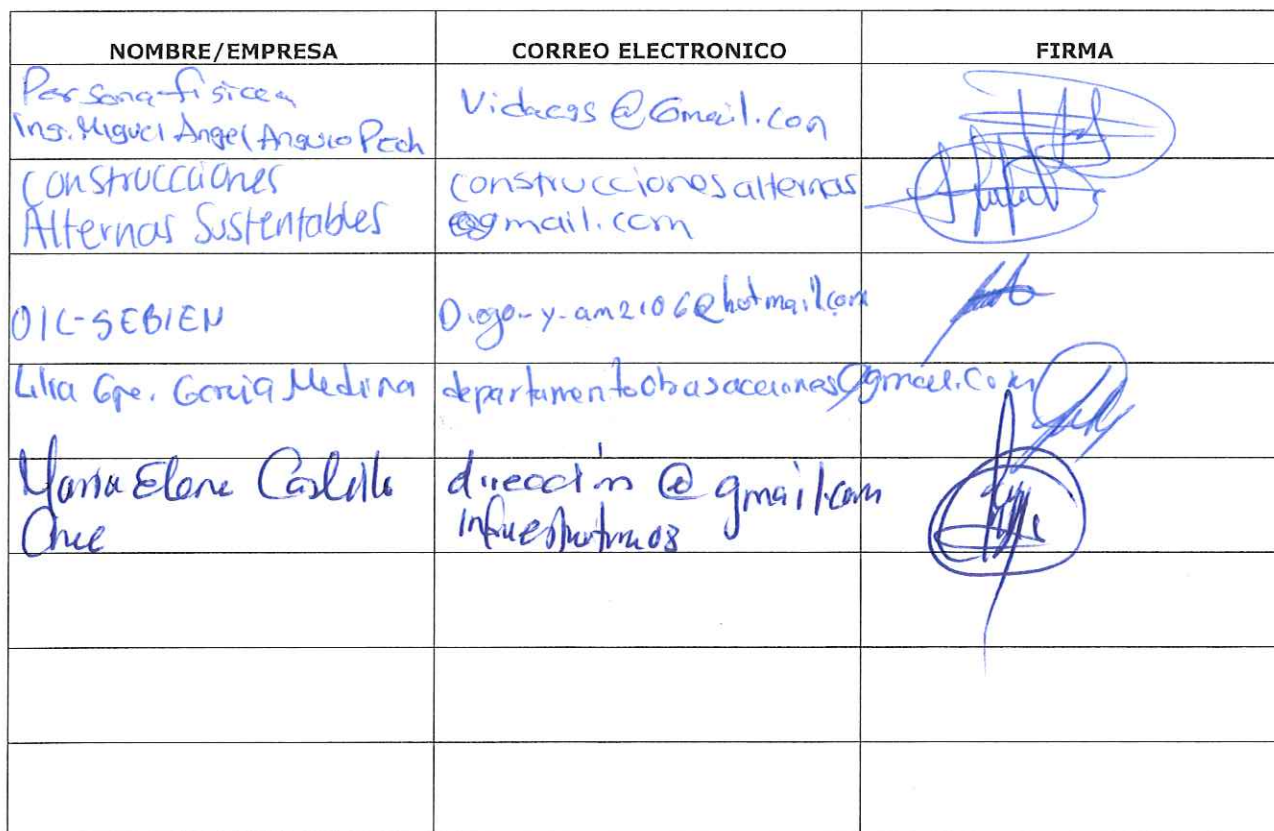 NOMBRE/EMPRESA CORREO ELECTRONICO FIRMA
Persona física
Ing. Miguel Angel Angulo Pech
Vidacgs@Gmail.com
Construcciones
Alternas Sustentables
construccionesalternas
@gmail.com
OIC-SEBIEN
Diego-y-am2106@hotmail.com
Lilia Gpe. García Medina
departamentoobrasacciones@gmail.com
María Elena Castillo
dirección @ gmail.com
infraestructura08